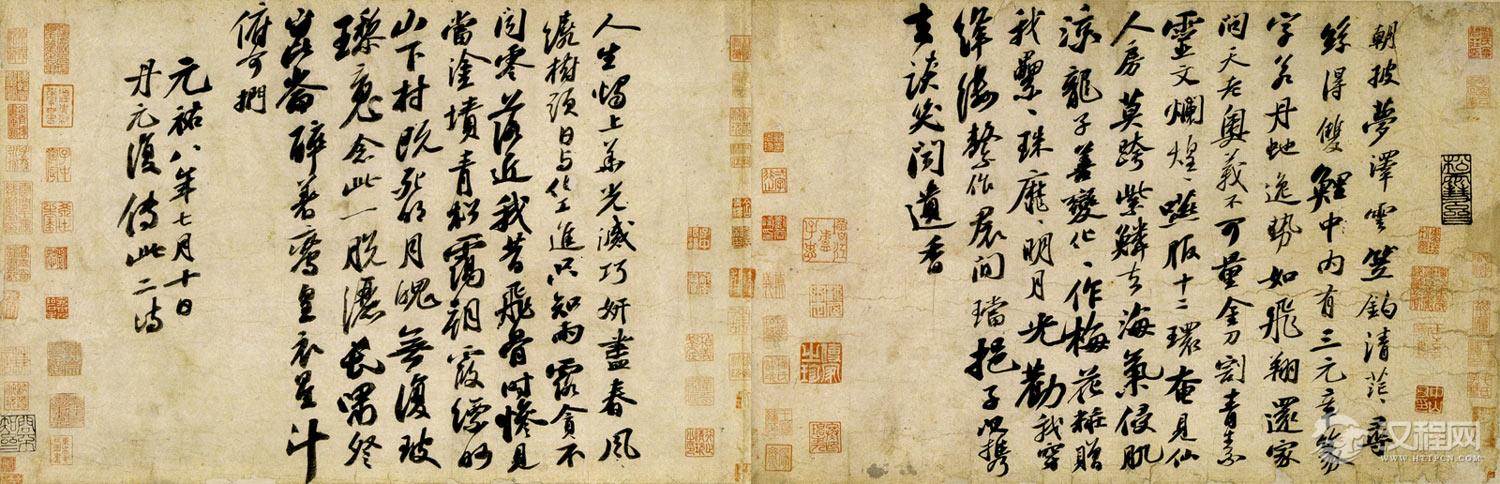 朝披夢澤雲笠釣清茫〻尋
絲得雙鯉中内有三元章篆
字若丹虵逸勢如飛翔還家
問天老奧義不可量金刀割青素
靈文爛煌〻嚥服十二環奄見仙
人房莫跨紫鱗去海氣侵肌
涼龍子善變化〻作梅花糚贈
我纍〻珠靡〻明月光勸我穿
絳縷繫作裾間璫挹子以攜
去談笑聞遺香
人生燭上華光滅巧妍盡春風
繞樹頭日与化工進只知雨露貪不
聞零落近我昔飛骨時慘見
當塗墳青松靄朝霞縹緲
山下村既死明月魄無復玻
瓈魂念此一脫灑長嘯祭
崑崙醉著鸞皇衣星斗
俯可捫
元祐八年七月十日
丹元復傳此二詩
汉程网
WWW.HTTPCN.COM